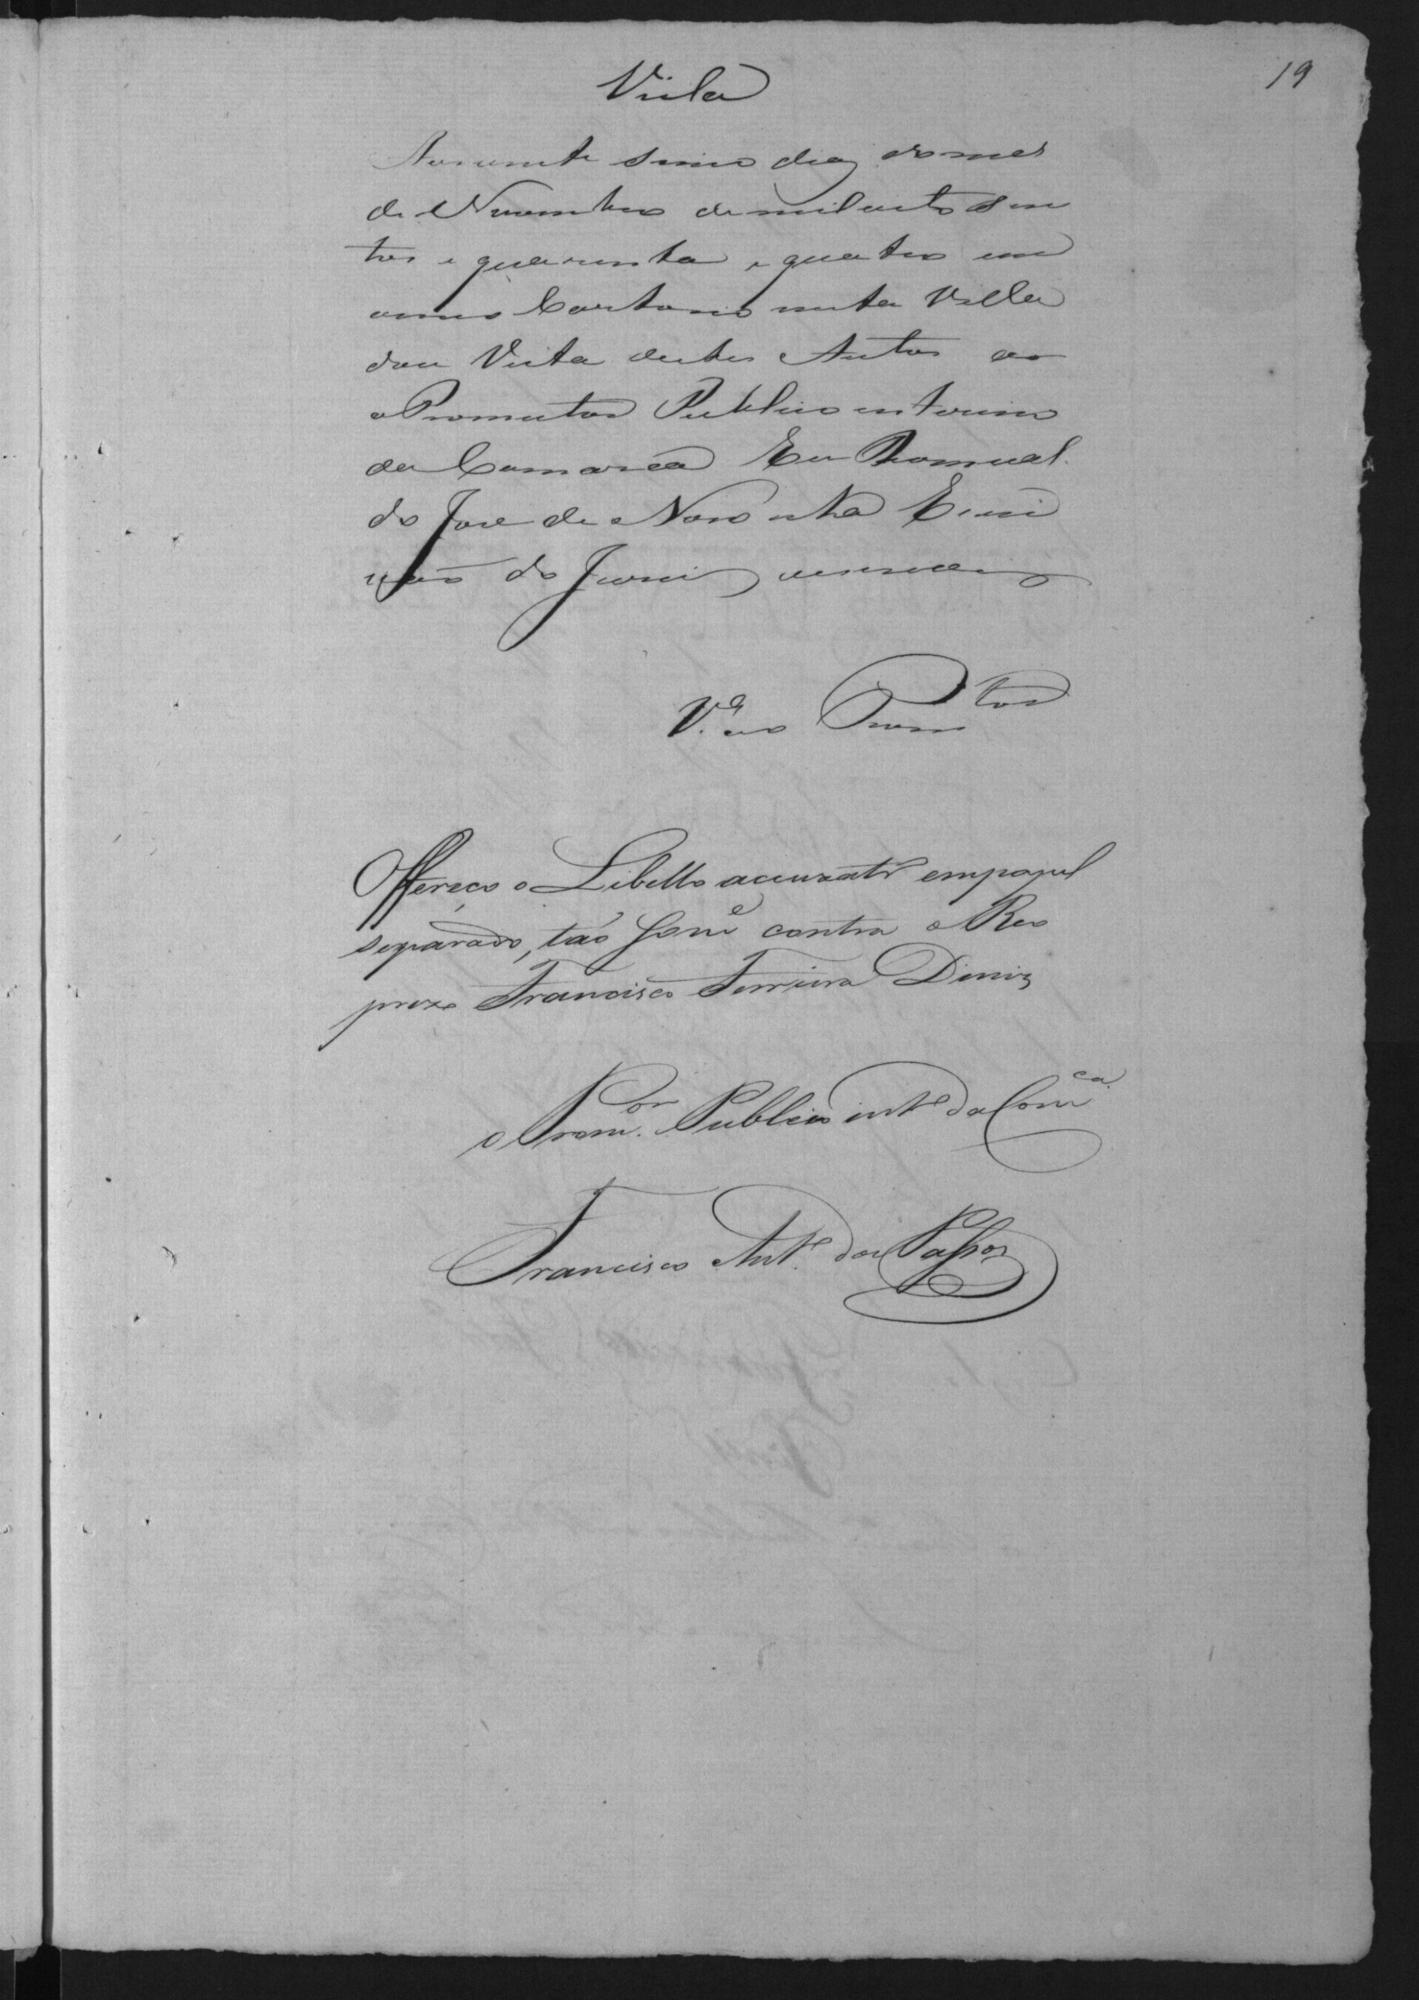 19
Vista
Aos vinte sinco dias do mes
de Novembro de mil oito sen
tos e quarenta e quatro em
o meu Cartorio nesta Villa
dou Vista destes Autos ao
o Promutor Publico interino
da Comarca Eu Romual
do Jose de Noronha Escri
vão do Jurÿ escrevi
V.ª ao Promtor
Offereço o Libello accuzatr empapel
separado, tão somе contra o Reo
prezo Francisco Ferreira Diniz
O Prom.or Publico intº da Comca.
Francisco Antº dos Passos